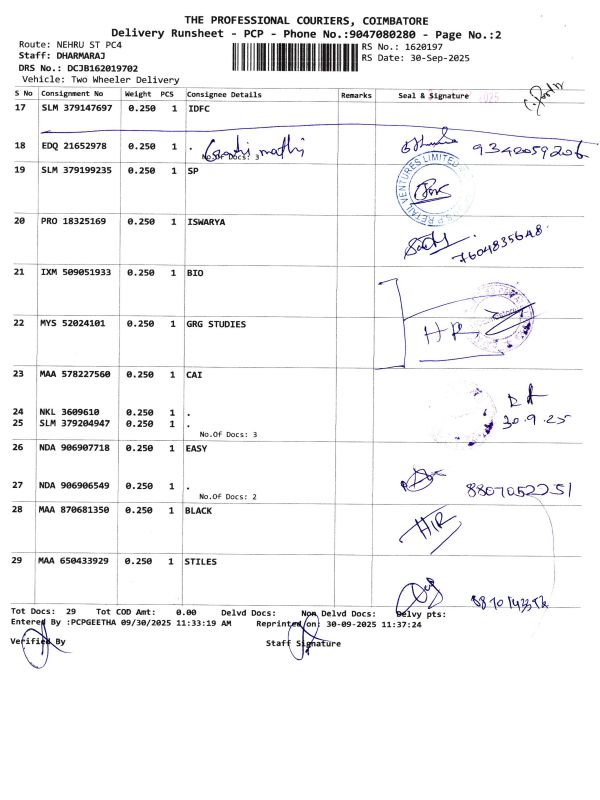 THE PROFESSIONAL COURIERS, COIMBATORE
Delivery Runsheet - PCP - Phone No.:9047080280 - Page No.:2
Route: NEHRU ST PC4
RS No.: 1620197
Staff: DHARMARAJ
RS Date: 30-Sep-2025
DRS No.: DCJB162019702
Vehicle: Two Wheeler Delivery
S No Consignment No Weight PCS Consignee Details Remarks Seal & Signature
17 SLM 379147697 0.250 1 IDFC
18 EDQ 21652978 0.250 1 . 9342059206
No.Of Docs: 3
19 SLM 379199235 0.250 1 SP
VENTURES LIMITED
20 PRO 18325169 0.250 1 ISWARYA
7604835648
21 IXM 509051933 0.250 1 BIO
22 MYS 52024101 0.250 1 GRG STUDIES
HR
23 MAA 578227560 0.250 1 CAI
24 NKL 3609610 0.250 1 .
25 SLM 379204947 0.250 1 . 30.9.25
No.Of Docs: 3
26 NDA 906907718 0.250 1 EASY
27 NDA 906906549 0.250 1 . 8807052251
No.Of Docs: 2
28 MAA 870681350 0.250 1 BLACK
HR
29 MAA 650433929 0.250 1 STILES
Tot Docs: 29 Tot COD Amt: 0.00 Delvd Docs: Non Delvd Docs: Delvy pts:
Entered By :PCPGEETHA 09/30/2025 11:33:19 AM Reprinted on: 30-09-2025 11:37:24
Verified By Staff Signature